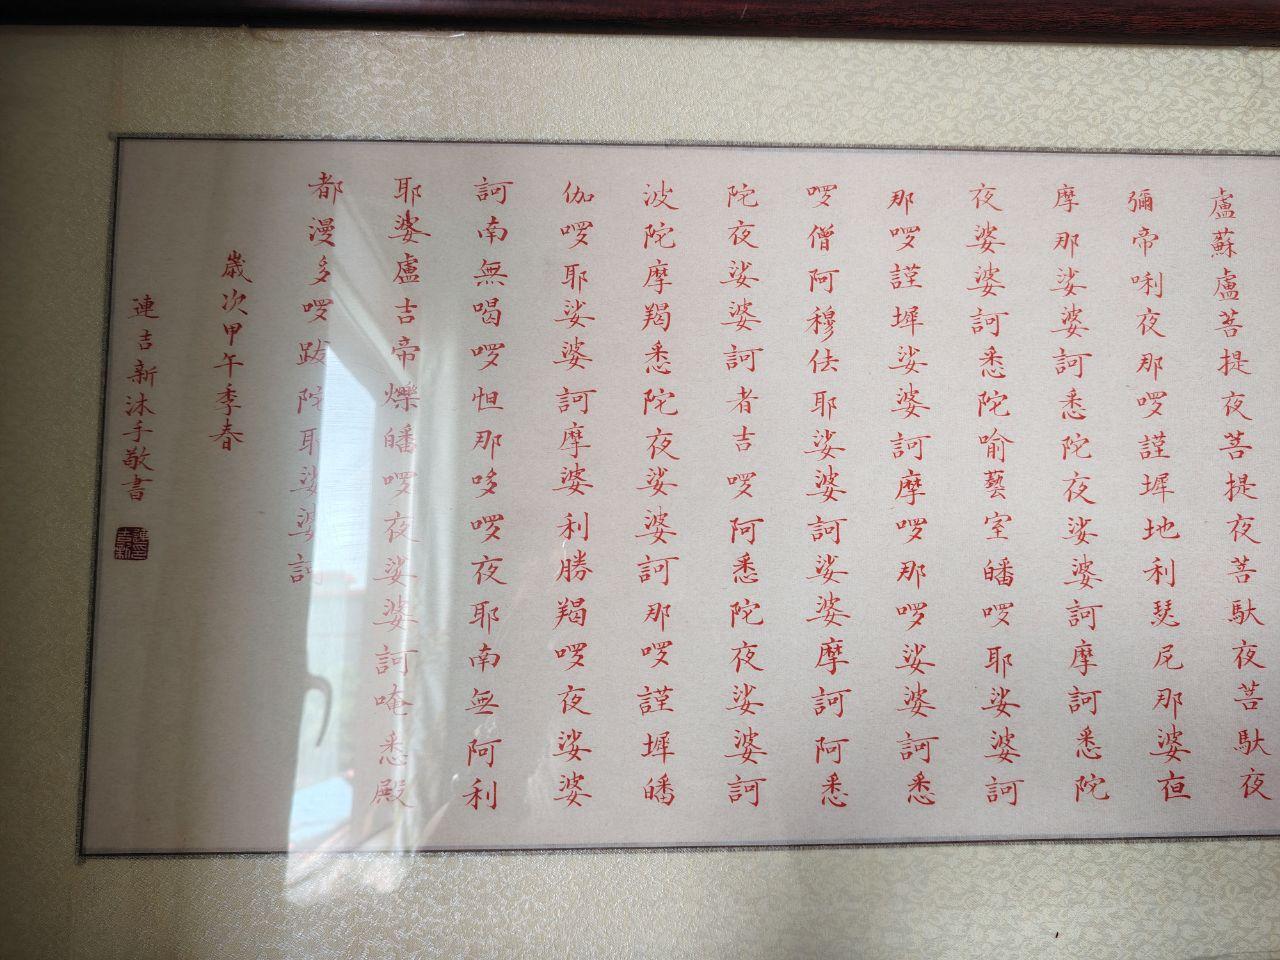 盧蘇盧菩提夜菩提夜菩馱夜菩馱夜
彌帝唎夜那啰謹墀地利瑟尼那婆夜
摩那娑婆訶悉陀夜娑婆訶摩訶悉陀
夜娑婆訶悉陀喻藝室皤啰耶娑婆訶
那啰謹墀娑婆訶摩啰那啰娑婆訶悉
啰僧阿穆佉耶娑婆訶娑婆摩訶阿悉
陀夜娑婆訶者吉啰阿悉陀夜娑婆訶
波陀摩羯悉陀夜娑婆訶那啰謹墀皤
伽啰耶娑婆訶摩婆利勝羯啰夜娑婆
訶南無喝啰怛那哆啰夜耶南無阿利
耶婆盧吉帝爍皤啰夜娑婆訶唵悉殿
都漫多啰跋陀耶娑婆訶
歲次甲午季春
連吉新沐手敬書